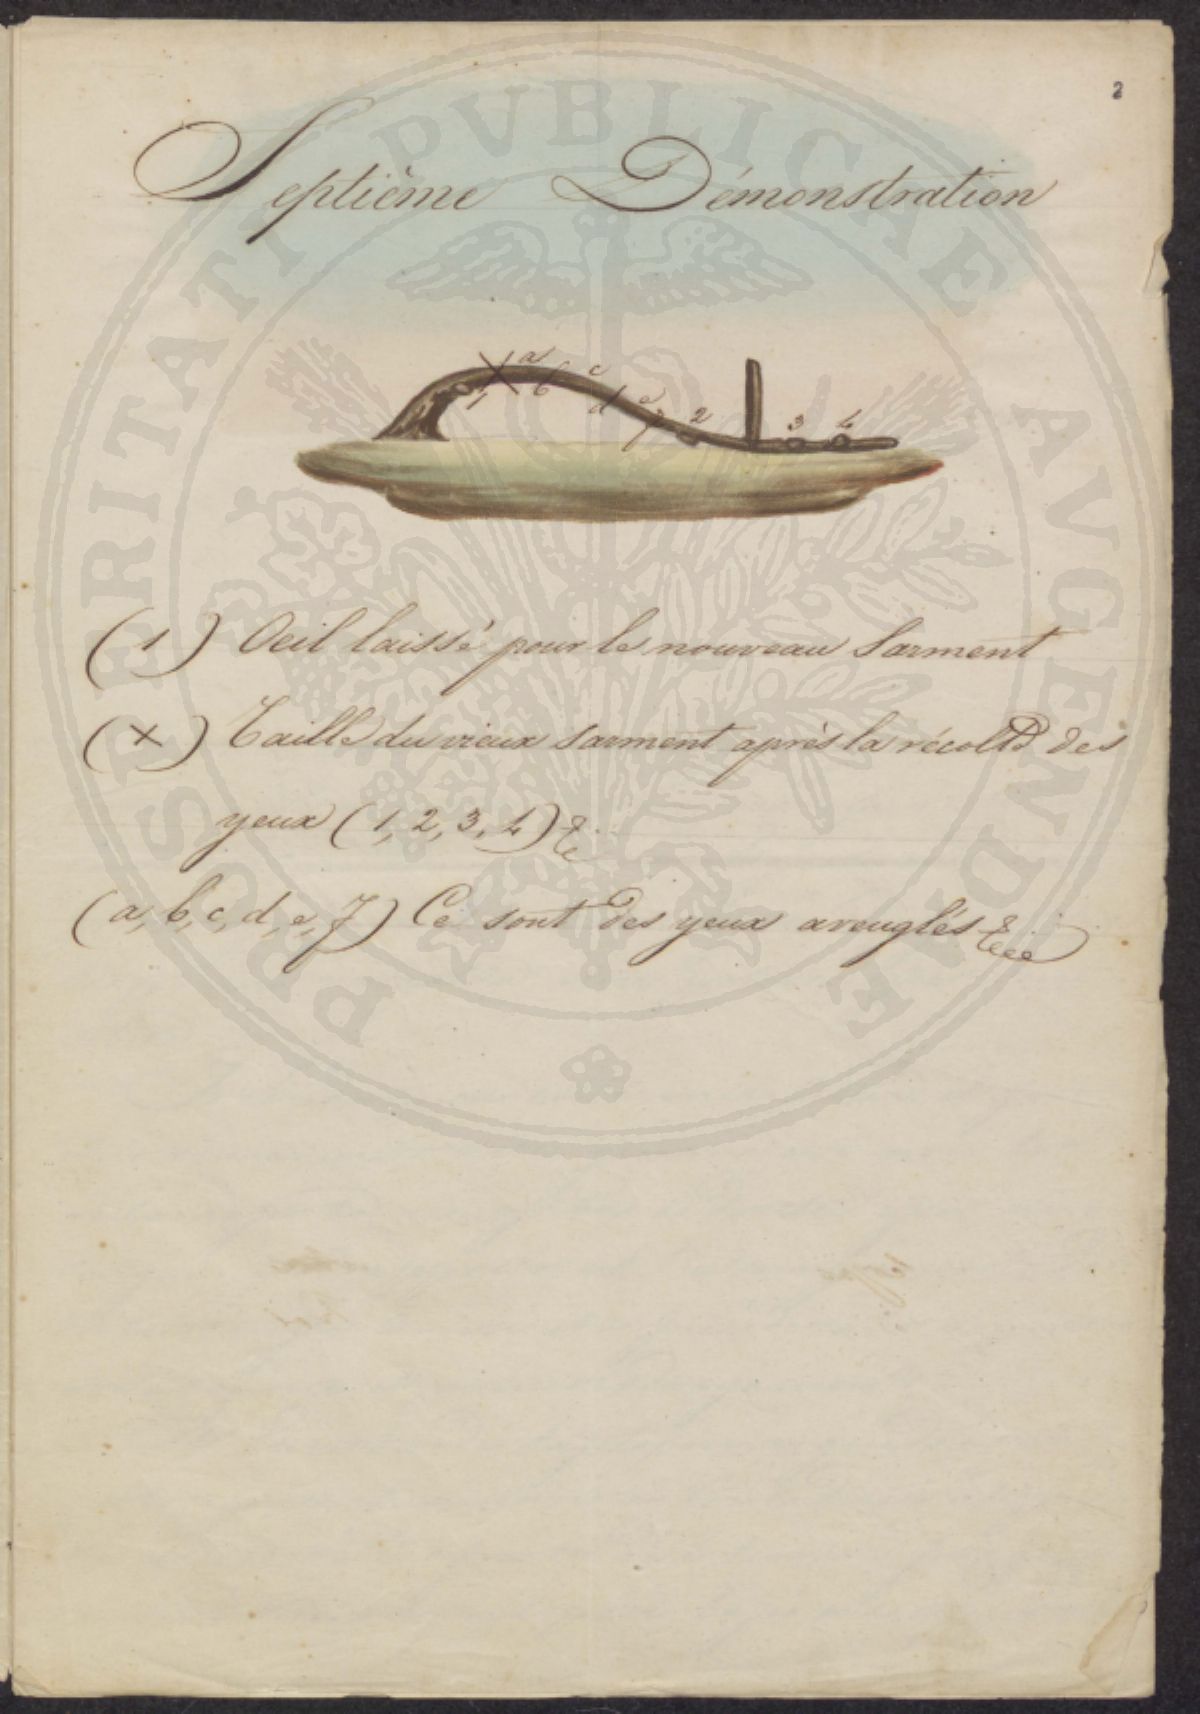 2
Septième Démonstration
1 X a b c d e f 2 3 4
(1) Oeil laissé pour le nouveau Sarment
(X) Taille du vieux sarment après la récolte des
yeux (1, 2, 3, 4)
(a, b, c, d, e, f) Ce sont des yeux aveuglés
PROSPERITATI PVBLICAE AVGENDAE